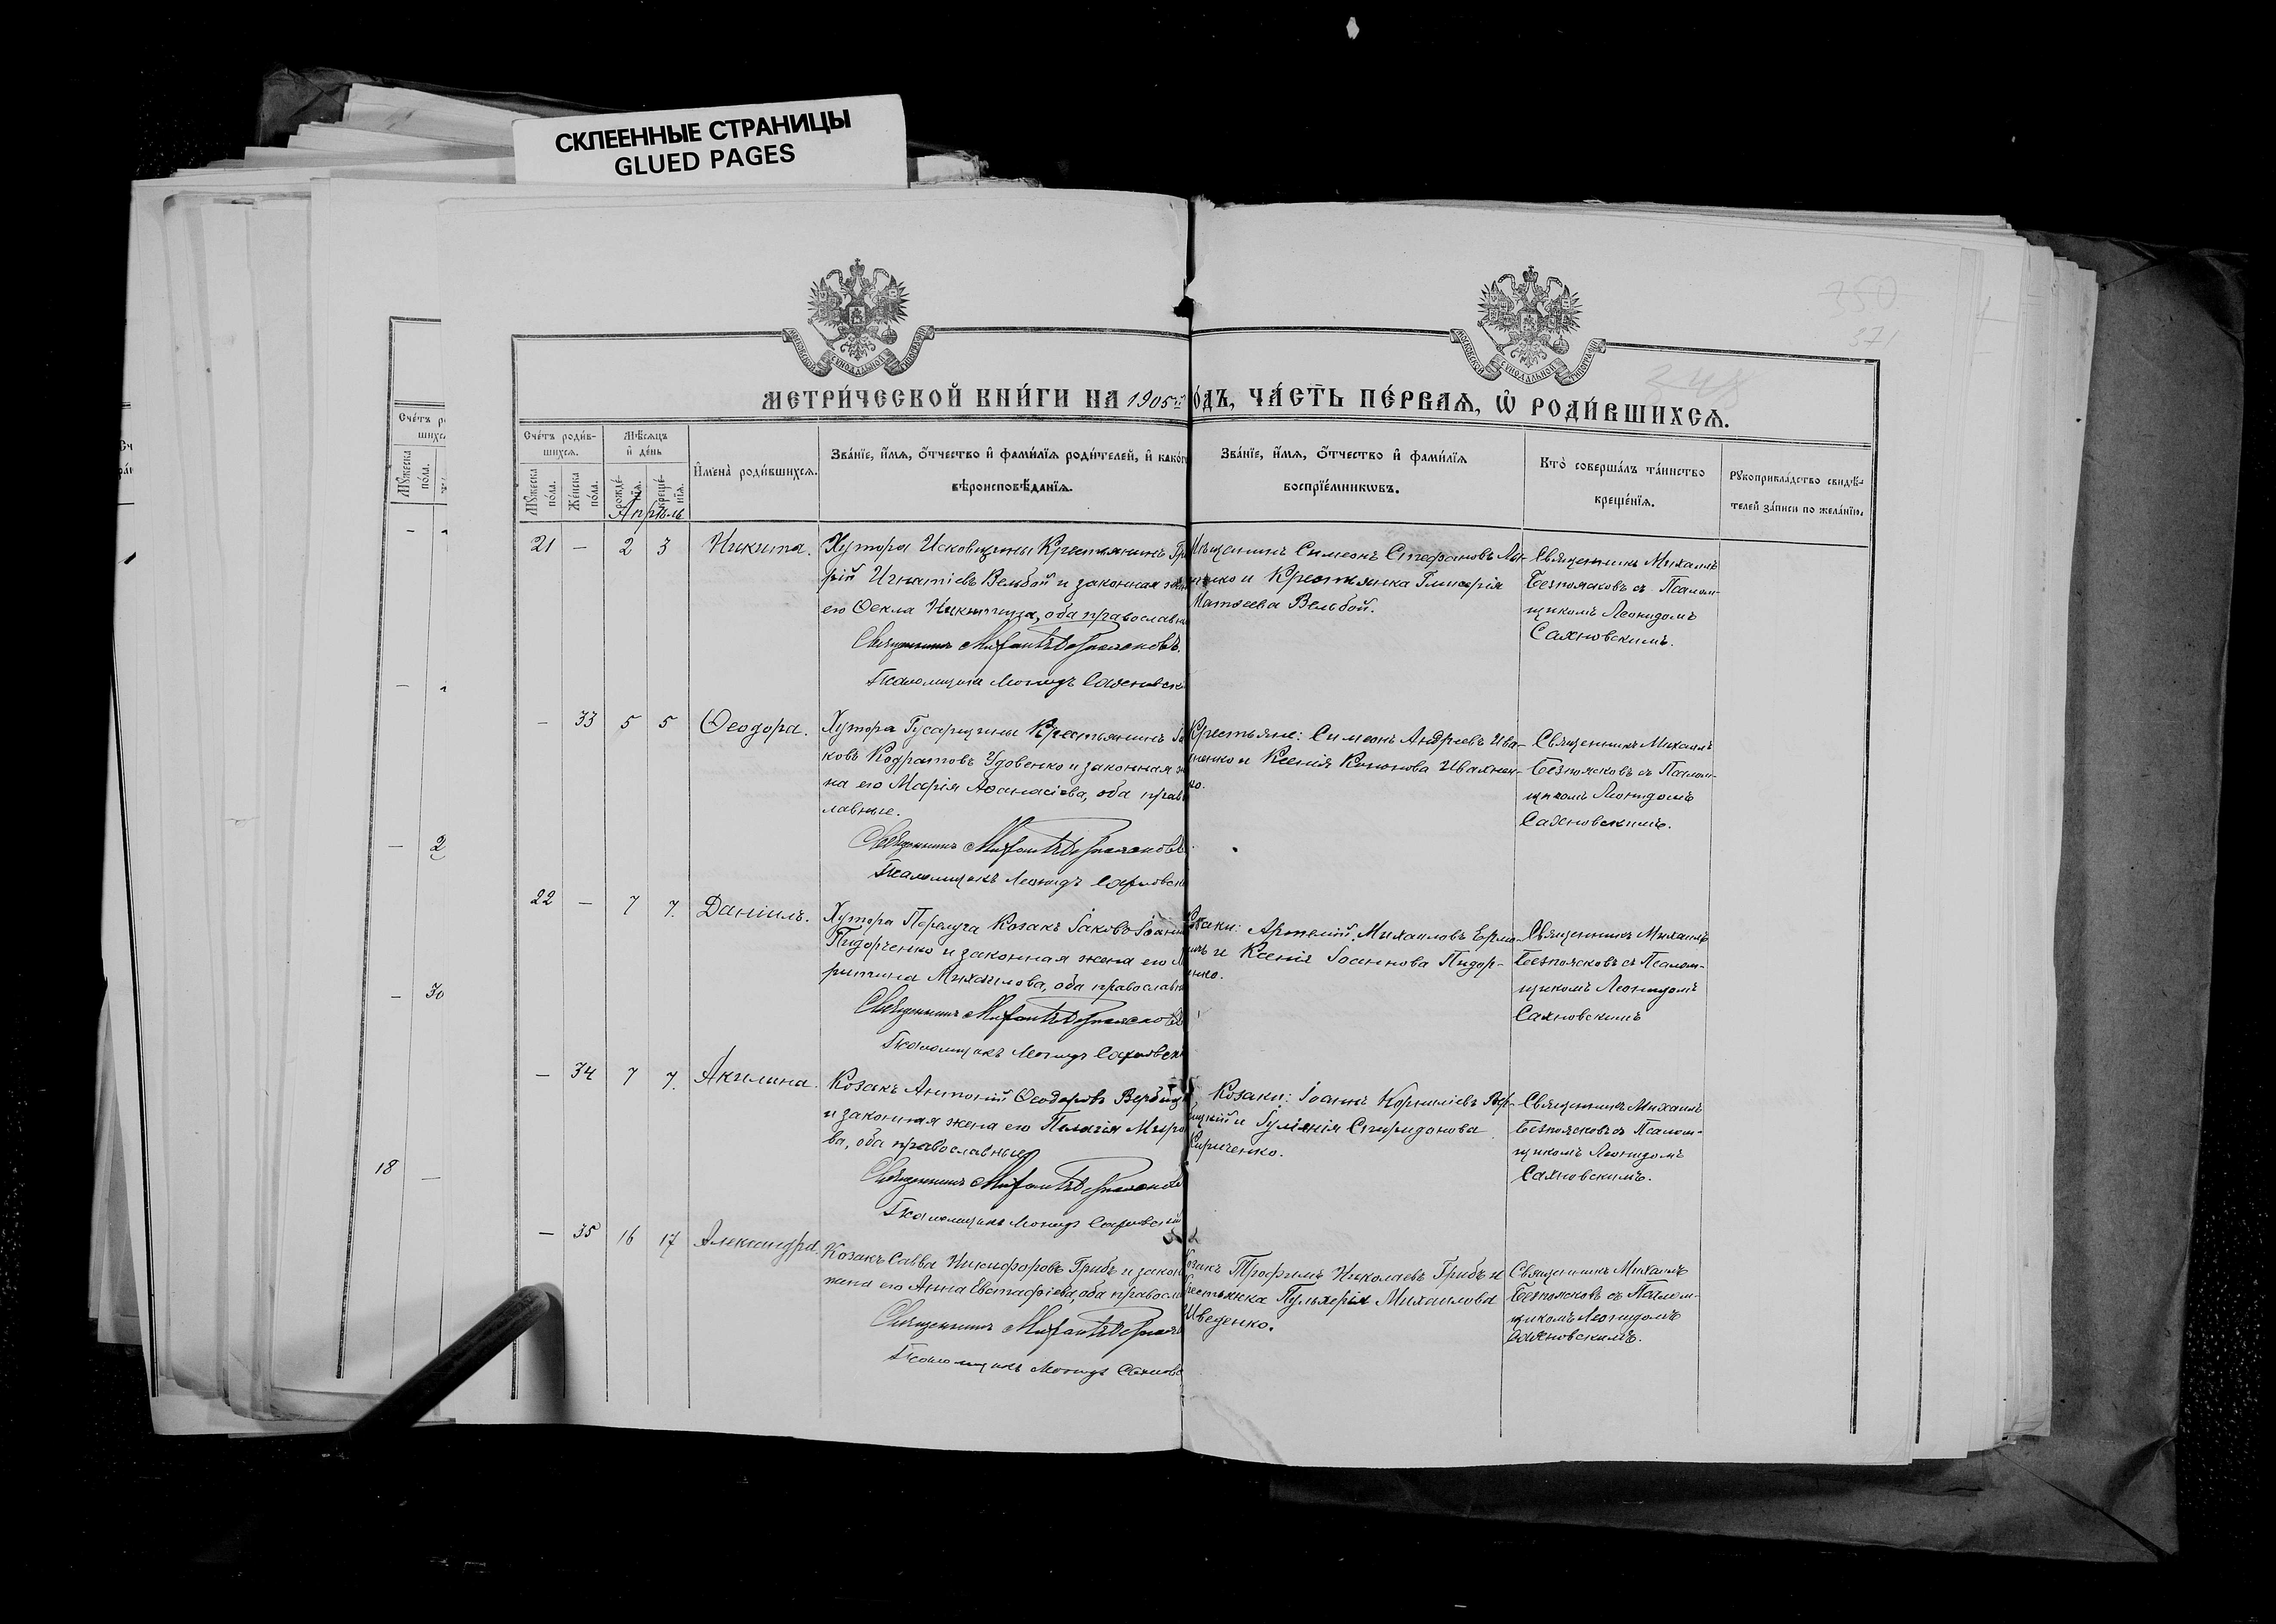 СКЛЕЕННЫЕ СТРАНИЦЫ
GLUED PAGES
350
371
МОСКОВСКОЙ СѴНОДАЛЬНОЙ ТИПОГРАФІИ
МОСКОВСКОЙ СѴНОДАЛЬНОЙ ТИПОГРАФІИ
МЕТРИ́ЧЕСКОЙ КНИ́ГИ НА 1905й
О́ДЪ, ЧА́СТЬ ПЕ́РВАѦ, Ѡ҆ РОДИ́ВШИХСѦ.
Сче́тъ роди́в-
шихсѧ.
Мꙋ́жеска по́ла.
Же́нска по́ла.
Мѣ́сѧцъ
и҆ де́нь
рожде́-
нїѧ.
креще́-
нїѧ.
Апрѣль
И҆мена̀ роди́вшихсѧ.
Зва́нїе, и҆́мѧ, ѻ҆́тчество и҆ фами́лїѧ роди́телей, и҆ како́г
вѣроисповѣ́данїѧ.
Зва́нїе, и҆́мѧ, ѻ҆́тчество и҆ фами́лїѧ
воспрїе́мникѡвъ.
Кто̀ соверша́лъ та́инство
креще́нїѧ.
Рꙋкоприкла́дство свидѣ́-
телей за́писи по жела́нїю.
21 — 2 3 Никита.
Хутора Исковщины Крестьянинъ Гри
рій Игнатіевъ Вельбой и законная жен
его Ѳекла Никитина, оба православн
Священникъ Михаилъ Безпоясковъ.
Псаломщикъ Леонидъ Сахновск
Мѣщанинъ Симеонъ Стефановъ
и Крестьянка Гликерія
Матѳеева Вельбой.
Священникъ Михаилъ
Безпоясковъ съ Псалом-
щикомъ Леонидомъ
Сахновскимъ.
— 33 5 5 Ѳеодора.
Хутора Гусарщины Крестьянинъ Іа
ковъ Кодратовъ Удовенко и законная же
на его Марія Аѳанасіева, оба право
лавные.
Священникъ Михаилъ Безпоясковъ
Псаломщикъ Леонидъ Сахновск
Крестьяне: Симеонъ Андреевъ Ива-
ненко и Ксенія Кононова Ивахнен-
ко.
Священникъ Михаилъ
Безпоясковъ съ Псалом-
щикомъ Леонидомъ
Сахновскимъ.
22 — 7 7. Даніилъ.
Хутора Перелуга Козакъ Іаковъ Іоанн
Пидорченко и законная жена его М
ритина Михаилова, оба православн
Священникъ Михаилъ Безпоясковъ
Псаломщикъ Леонидъ Сахновск
Козаки: Артемій Михаиловъ Ермо-
и Ксенія Іоаннова Пидор-
енко.
Священникъ Михаилъ
Безпоясковъ съ Псалом-
щикомъ Леонидомъ
Сахновскимъ
— 34 7 7. Акилина.
Козакъ Антоній Ѳеодоровъ Вербиц
и законная жена его Пелагія Миро
ва, оба православные
Священникъ Михаилъ Безпоясковъ
Псаломщикъ Леонидъ Сахновскій
Козаки: Іоаннъ Корниліевъ Вер-
ицкій и Іуліанія Спиридонова
Кириченко.
Священникъ Михаилъ
Безпоясковъ съ Псалом-
щикомъ Леонидомъ
Сахновскимъ.
— 35 16 17 Александра.
Козакъ Савва Никифоровъ Грибъ и закон
жена его Анна Евстафіева, оба правосла
Священникъ Михаилъ Безпоясковъ
Псаломщикъ Леонидъ Сахновс
Козакъ Трофимъ Николаевъ Грибъ и
Крестьянка Пульхерія Михаилова
Шведенко.
Священникъ Михаилъ
Безпоясковъ съ Псалом-
щикомъ Леонидомъ
Сахновскимъ.
Сче́тъ р
шихс
Мꙋ́жеска
по́ла.
2
30
18